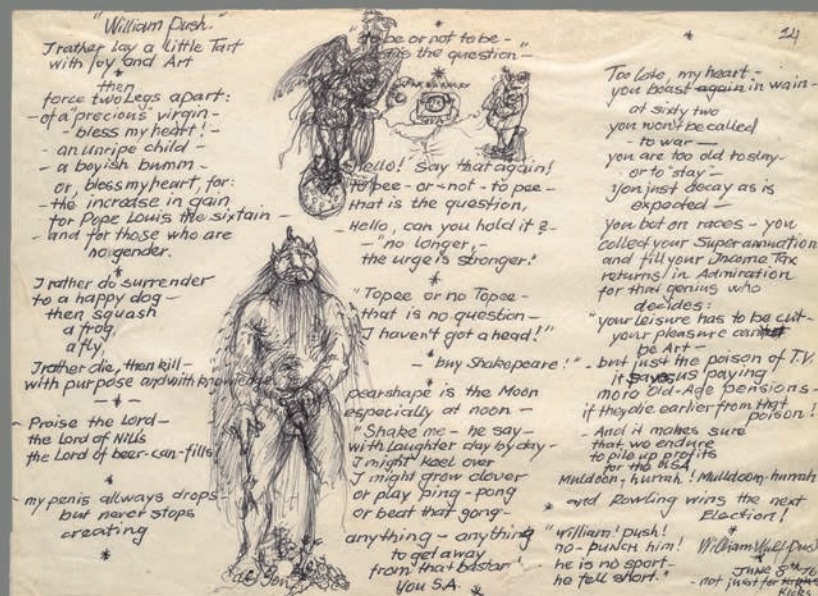 "William Push."
I rather lay a little Tart
with joy and Art
then
force two Legs apart:
- of a "precious virgin -
- bless my heart! -
- an unripe child -
- a boyish bumm -
or, bless my heart, for:
- the increase in gain
for Pope Louis the sixtain -
- and for those who are
no gender.
I rather do surrender
to a happy dog -
then squash
a frog,
a fly,
I rather die, then kill -
with purpose and with knowledge
- Praise the Lord -
the Lord of Nills
the Lord of beer-can-fills
- my penis allways drops -
but never stops
creating
"to be or not to be -
is the question -"
Hello! say that again!
to pee - or - not - to pee -
that is the question,
- Hello, can you hold it?
- "no longer, -
the urge is stronger!"
"Topee or no Topee -
that is no question -
I haven't got a head!"
- "buy Shakepeare!"
pearshape is the Moon
especially at noon -
"Shake me - he say -
with laughter day by day -
I might keel over
I might grow clover
or play ping - pong
or beat that gong -
anything - anything
to get away
from that bastar!
You S.A.
24
Too late, my heart -
you boast again in wain -
at sixty two
you won't be called
- to war -
you are too old to slay -
or to "stay" -
You just decay as is
expected -
you bat on races - you
collect your Superannuation
and fill your Income Tax
returns in Admiration
for that genius who
decides:
"your leisure has to be cut -
your pleasure
be Art -
- but just the poison of T.V.
it saves us paying
more Old-Age pensions -
if they die earlier from that
poison!
- And it makes sure
that, we endure
to pile up profits
for the USA
Muldoon, hurrah! Mulldoon, hurrah
and Rowling wins the next
Election!
"William! push!
no - PUNCH him!
he is no sport -
he fell short."
William Wulf Push
JUNE 8th 76
- not just for
Kicks